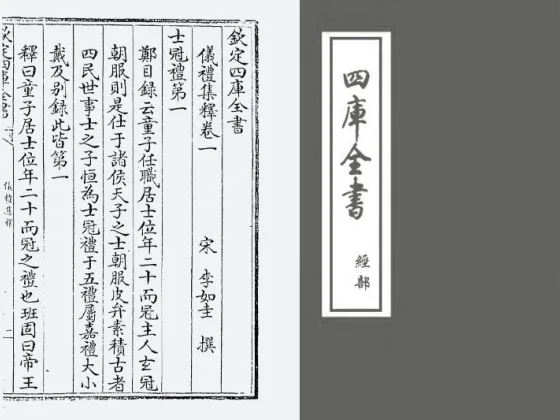 欽定四庫全書
儀禮集釋卷一
宋 李如圭 撰
士冠禮第一
鄭目録云童子任職居士位年二十而冠主人玄冠
朝服則是仕于諸侯天子之士朝服皮弁素積古者
四民世事士之子恒為士冠禮于五禮屬嘉禮大小
戴及别録此皆第一
釋曰童子居士位年二十而冠之禮也班固曰帝王
欽定四庫全書
儀禮集釋
四庫全書
經部